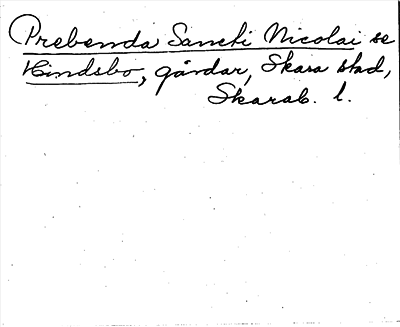 Prebenda Sancti Nicolai se
Hindsbo, gårdar, Skara stad,
Skarab. l.